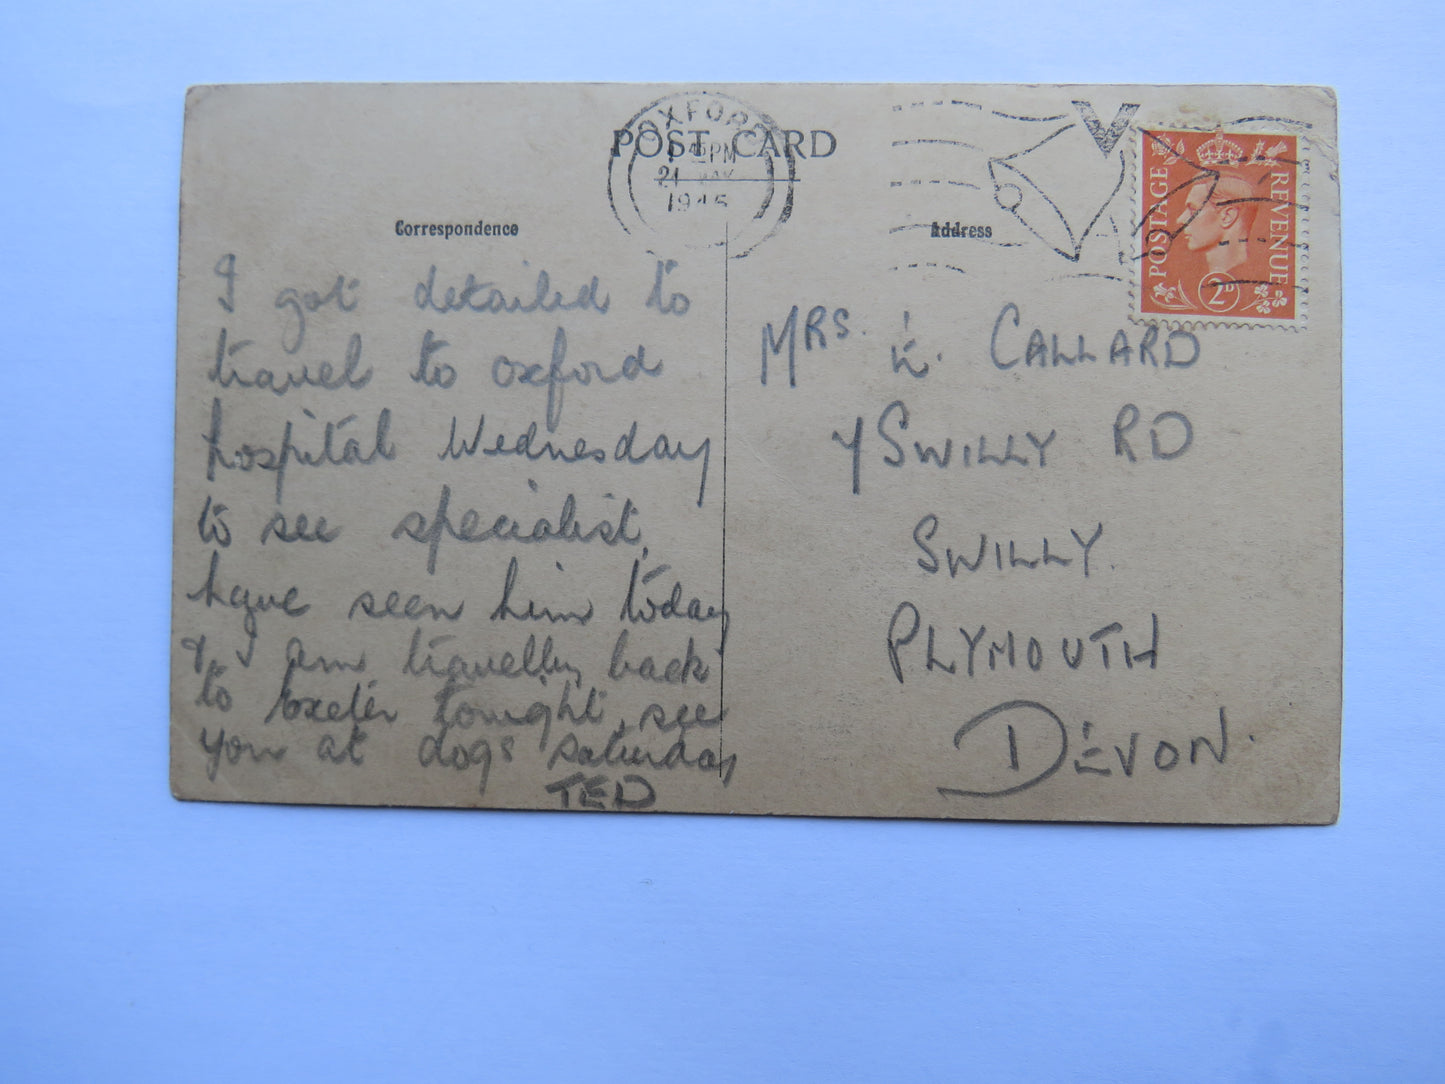 POST CARD
OXFORD
1 45 PM
21 MAY
1945
POSTAGE
REVENUE
2D
Correspondence
Address
I got detailed to
travel to oxford
hospital Wednesday
to see specialist,
have seen him today
& I am travelling back
to Exeter tonight, see
you at dogs saturday
TED
MRS. CALLARD
SWILLY RD
SWILLY.
PLYMOUTH
DEVON.